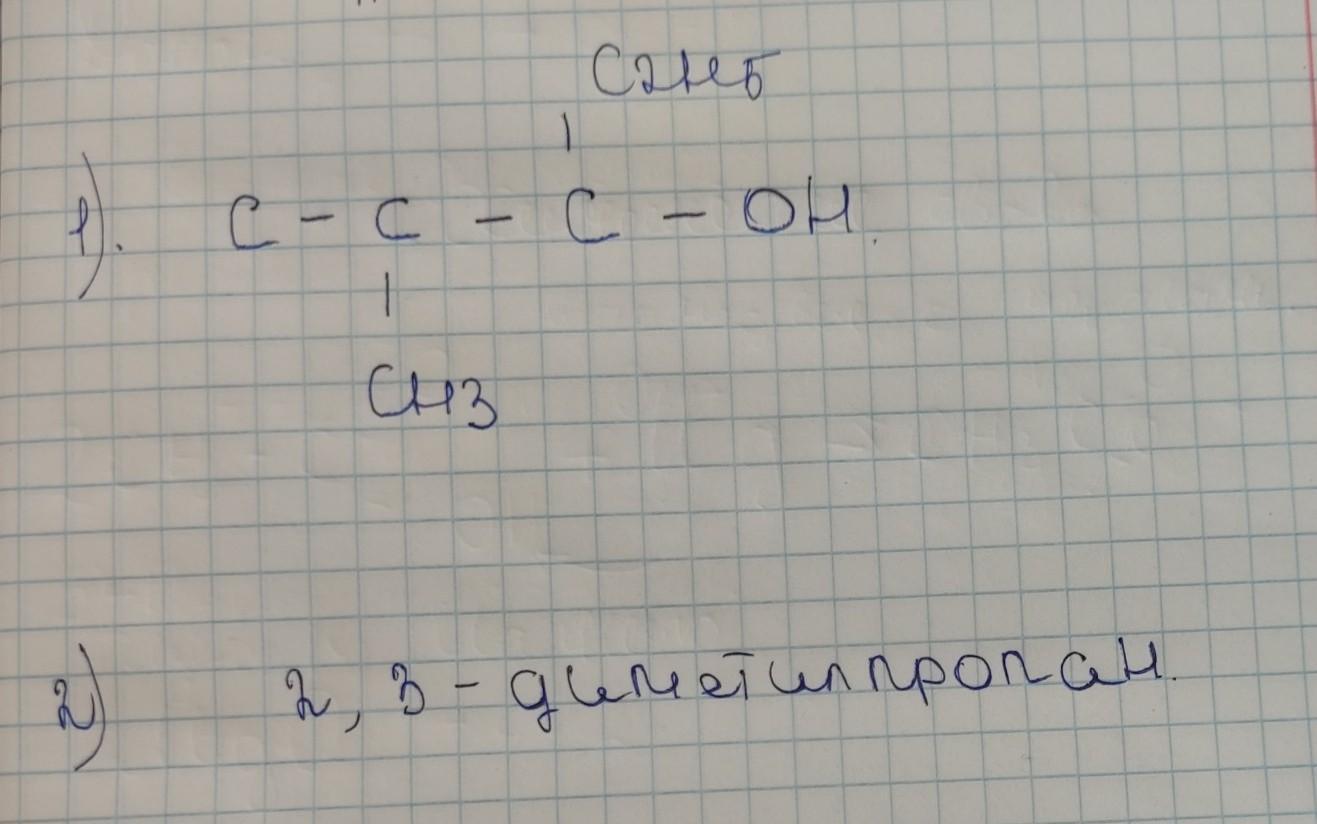 C2H5
|
1). C - C - C - OH.
|
CH3
2) 2, 3 - диметилпропан.